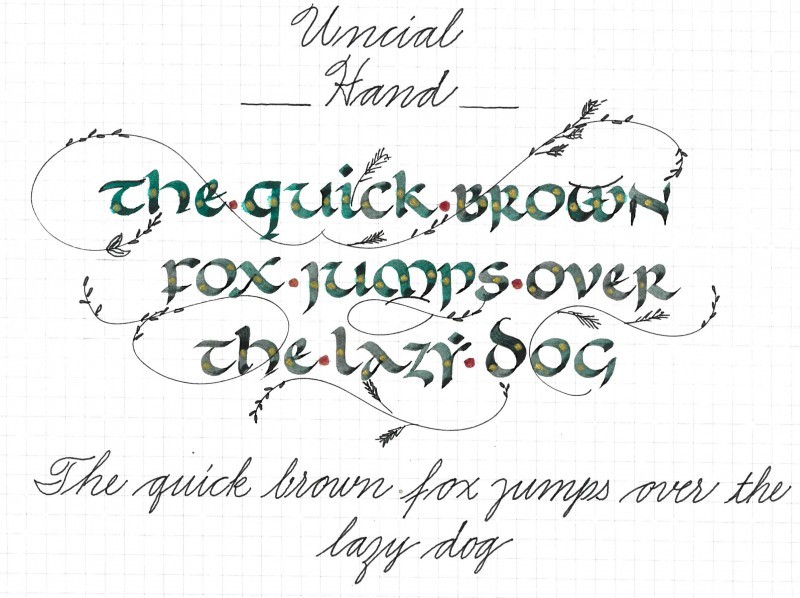 Uncial
Hand
the·quick·BROWN
fox·jumps·over
the·lazy·dog
The quick brown fox jumps over the
lazy dog